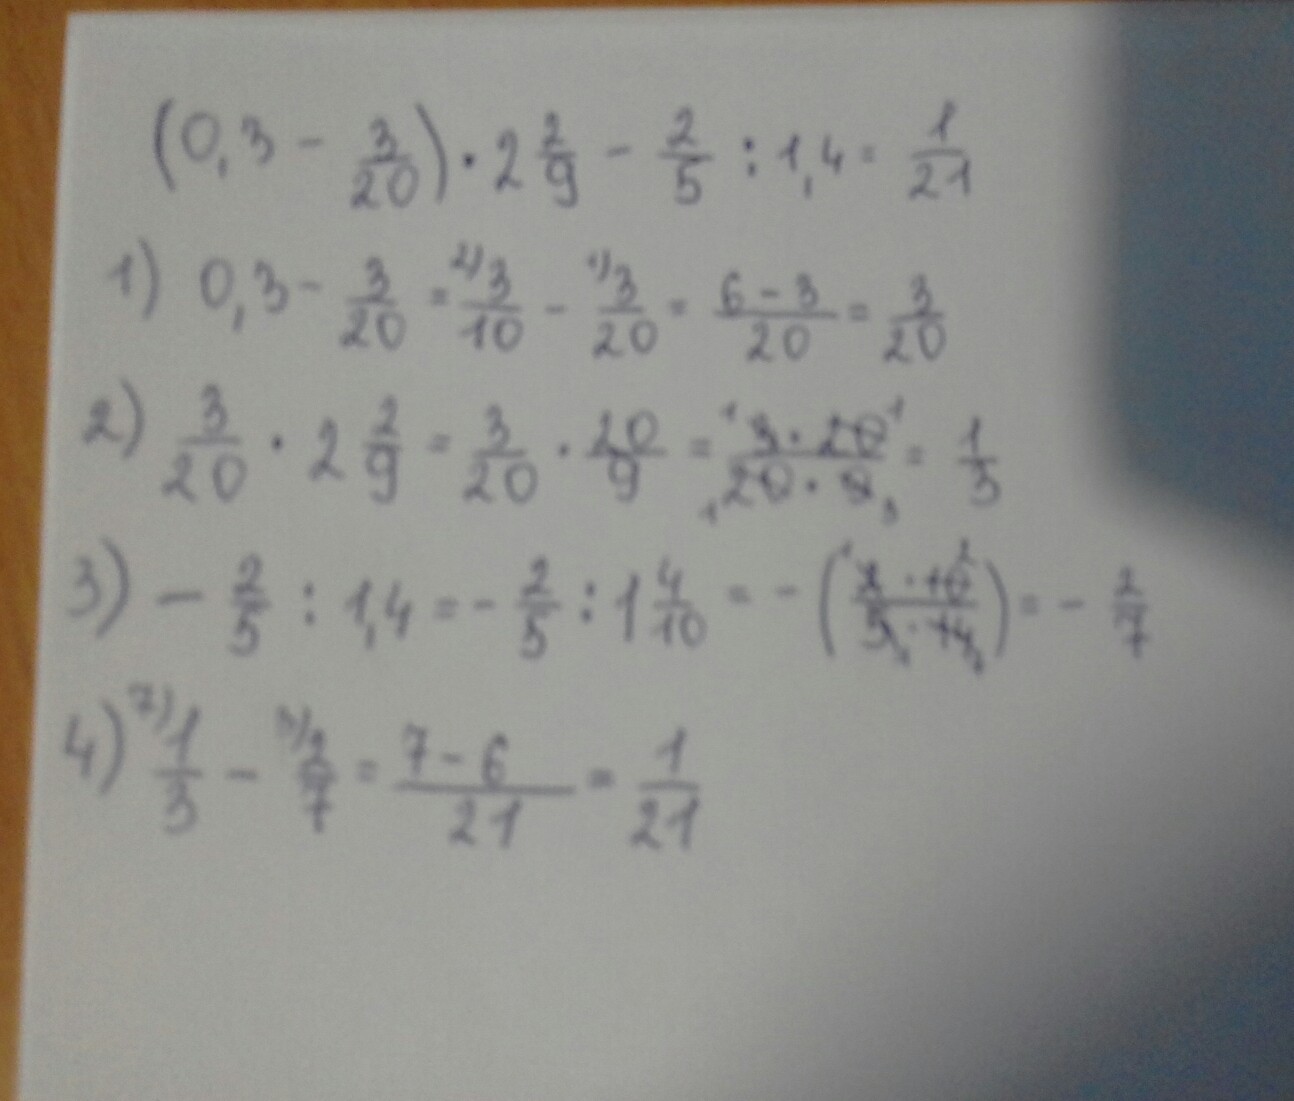 (0,3 - 3/20) · 2 2/9 - 2/5 : 1,4 = 1/21
1) 0,3 - 3/20 = 2) 3/10 - 1) 3/20 = 6 - 3/20 = 3/20
2) 3/20 · 2 2/9 = 3/20 · 20/9 = 1 3 · 20 1/1 20 · 9 3 = 1/3
3) - 2/5 : 1,4 = - 2/5 : 1 4/10 = - (1 2 · 10 2/5 1 · 14 7) = - 2/7
4) 7) 1/3 - 3) 2/7 = 7 - 6/21 = 1/21